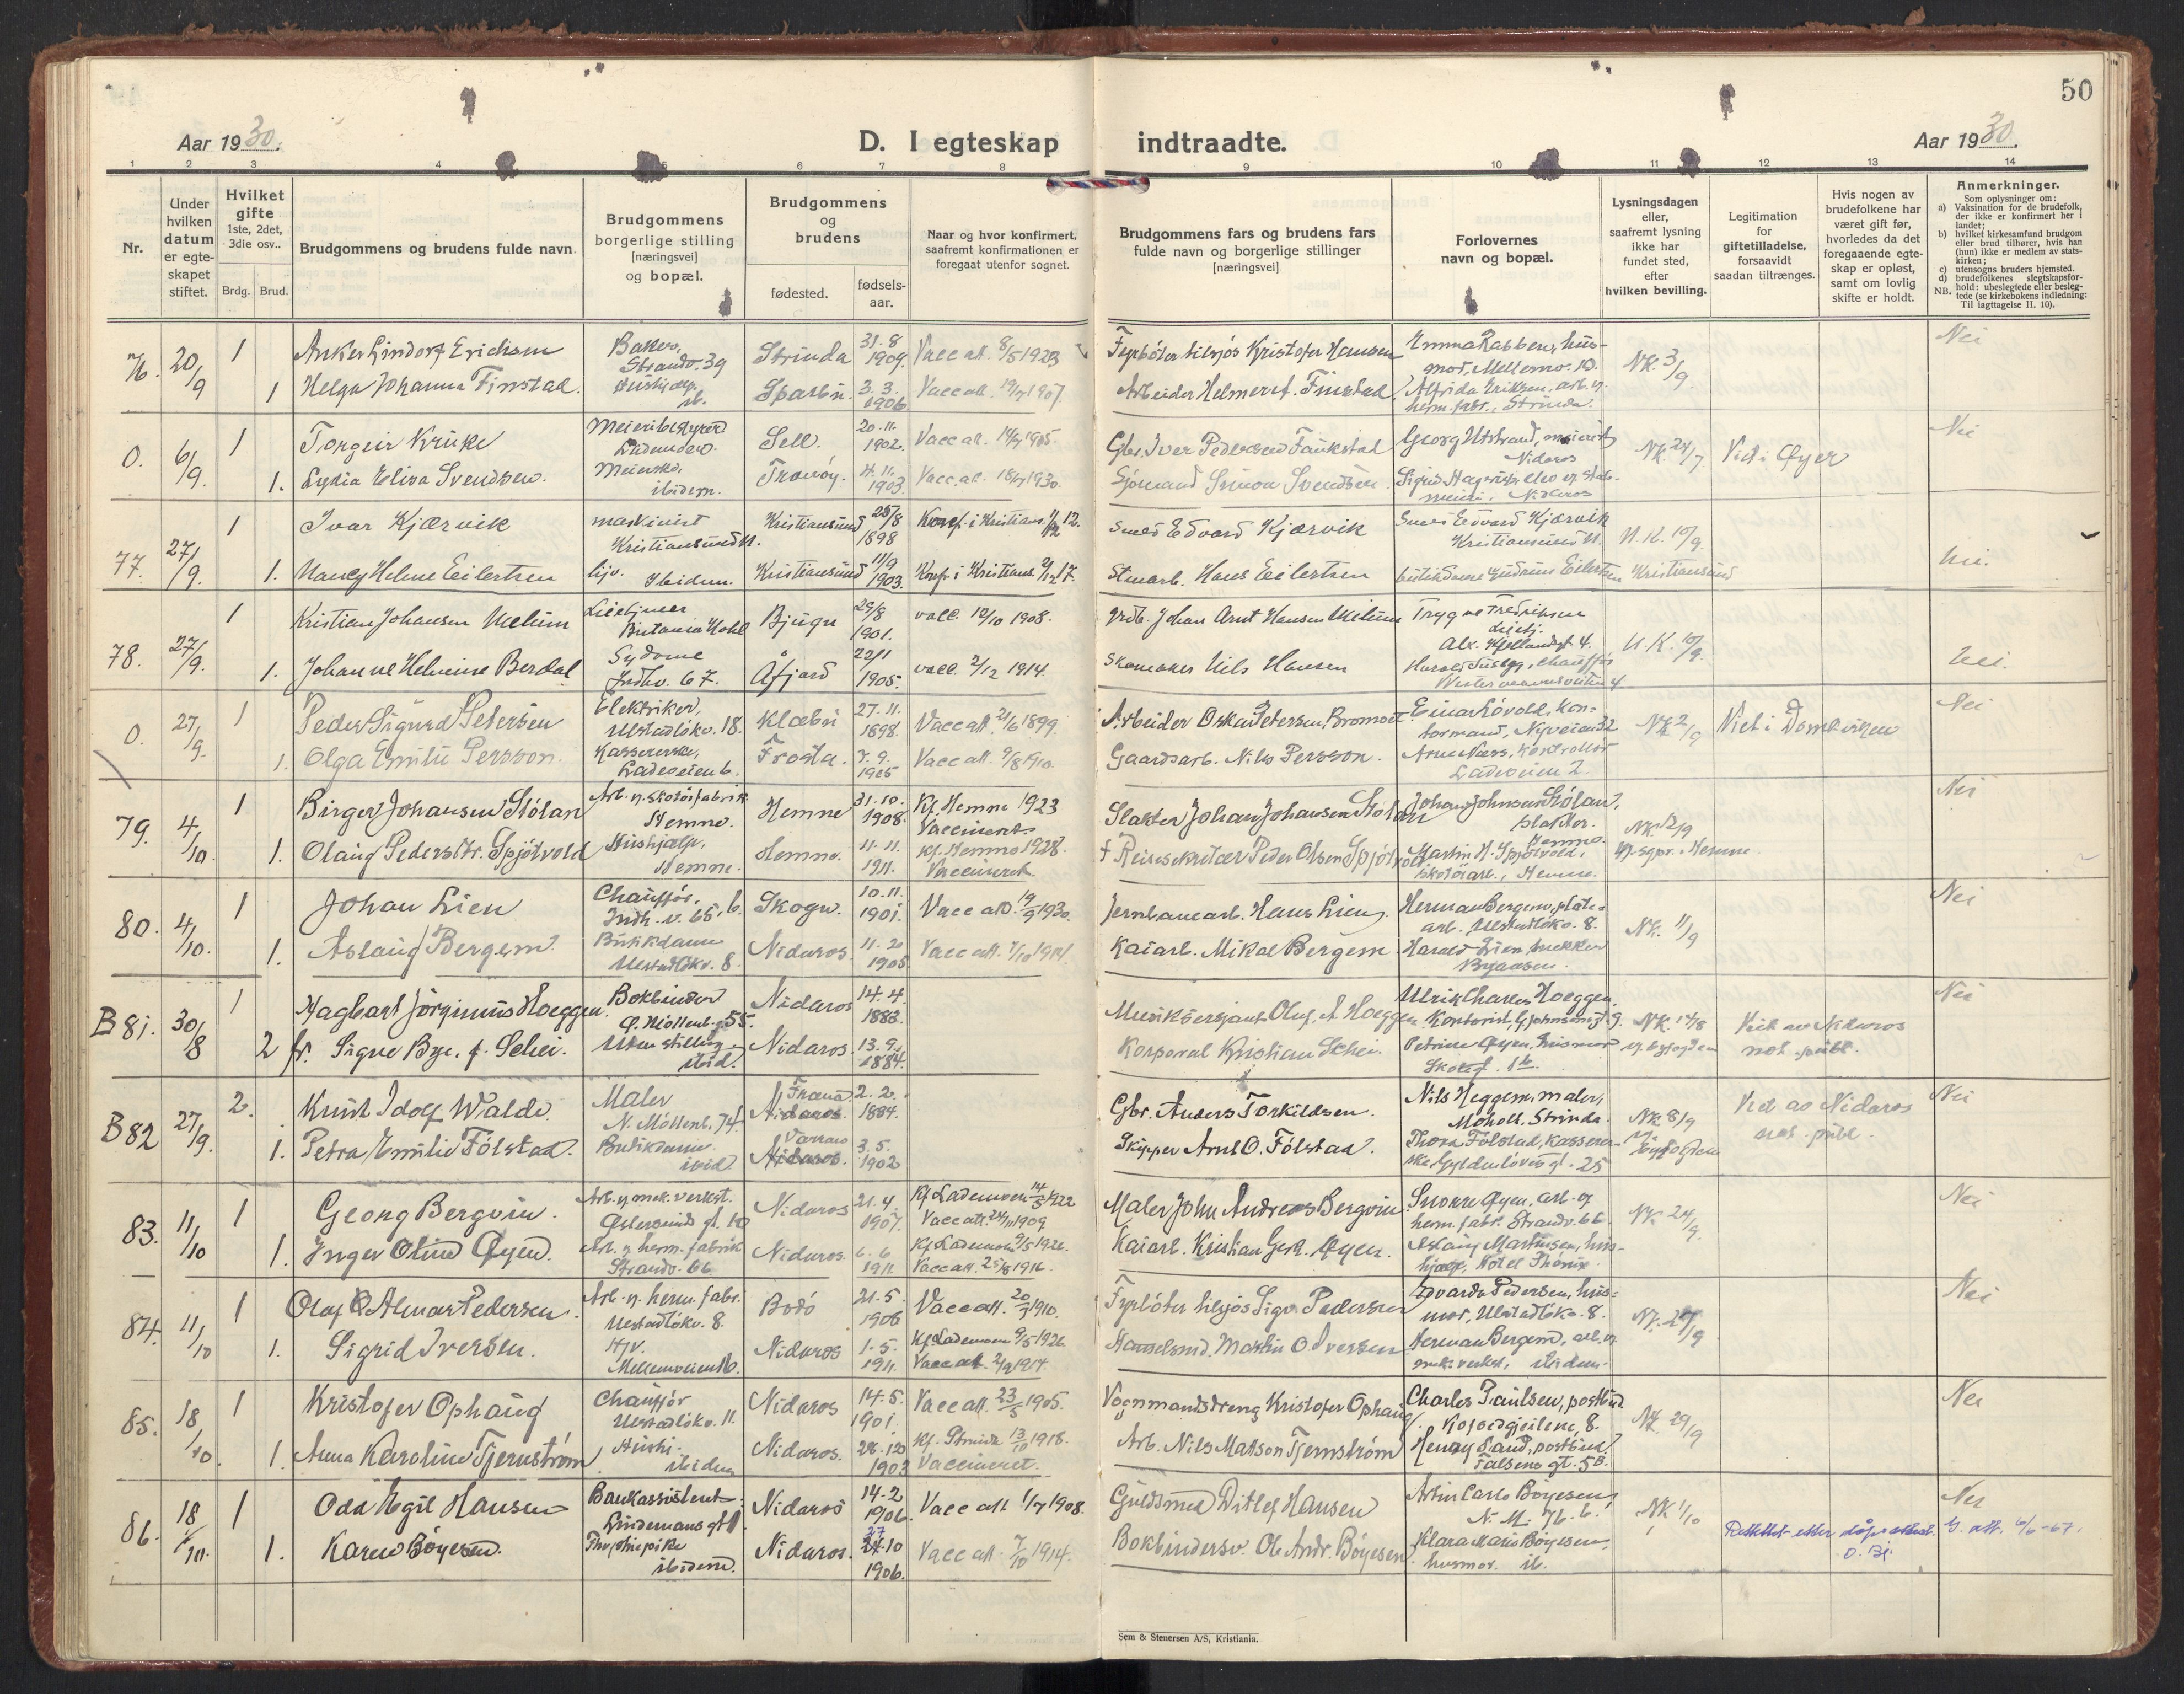 50
Aar 1930.
D. I egteskap indtraadte.
Aar 1930.
1 2 3 4 5 6 7 8 9 10 11 12 13 14
Nr.
Under hvilken datum er egteskapet stiftet.
Hvilket gifte 1ste, 2det, 3die osv..
Brdg. Brud.
Brudgommens og brudens fulde navn.
Brudgommens borgerlige stilling [næringsvei] og bopæl.
Brudgommens og brudens
fødested.
fødselsaar.
Naar og hvor konfirmert, saafremt konfirmationen er foregaat utenfor sognet.
Brudgommens fars og brudens fars fulde navn og borgerlige stillinger [næringsvei]
Forlovernes navn og bopæl.
Lysningsdagen eller, saafremt lysning ikke har fundet sted, efter hvilken bevilling.
Legitimation for giftetilladelse, forsaavidt saadan tiltrænges.
Hvis nogen av brudefolkene har været gift før, hvorledes da det foregaaende egteskap er opløst, samt om lovlig skifte er holdt.
Anmerkninger.
Som oplysninger om:
a) Vaksination for de brudefolk, der ikke er konfirmert her i landet;
b) hvilket kirkesamfund brudgom eller brud tilhører, hvis han (hun) ikke er medlem av statskirken;
c) utensogns bruders hjemsted.
d) brudefolkenes slegtskapsforhold: ubeslegtede eller beslegtede (se kirkebokens indledning: Til iagttagelse II. 10).
NB.
76. 20/9 1 Anker Lindorf Erichsen Baker, Strandv. 39 Strinda 31-8 1909 Vacc att. 8/5 1923 Fyrbøter tilsjøs Kristofer Hansen Emma Rabben, husmor, Mellemv. 10. NK. 3/9 Nei
1 Helga Johanne Finstad. Hushjelp. ib. Sparbu 3.3. 1906 Vacc att. Arbeider Helmer Finstad Alfrida Eriksen, arb. v. herm. fabr., Strinda.
0. 6/9 1 Torgeir Kruke Meieribestyrer Lademoen. Sell. 20.11. 1902. Vacc att. 14/7 1905. Gbr. Iver Pedersen Faukstad Georg Utstrand, meierist Nidaros NK. 24/7 Viet i Øyer Nei
1. Lydia Elisa Svendsen. Meierske. ibidem. Tranøy. 4.11. 1903. Vacc. att. 18/7 1930. Sjømand Simon Svendsen Nidaros
77. 27/9. 1 Ivar Kjærvik maskinist Kristiansund N. Kristiansund 25/8 1898 Konf. i Kristians. 1/12 12. Smed Edvard Kjærvik Smed Edvard Kjærvik Kristiansund N. N.K. 10/9.
1. Nancy Helene Eilertsen hjv. Ibidem. Kristiansund 11/9 1903. Konf. i Kristians. 9/12 17. Stuearb. Hans Eilertsen butikdame Gudrun Eilertsen Kristiansund nei.
78. 27/9. 1 Kristian Johansen Melum Britania Hotel Bjugn 29/8 1901. vacc. 12/10 1908. Johan Arnt Hansen Melum Trygve Fredriksen Alx. Kjellandsgt. 4. N.K. 10/9.
1. Johanne Helmine Berdal Sydame Indhv. 67. Åfjord 22/11 1905. vacc. 2/12 1914. Skomaker Nils Hansen Harald Susegg, chauffør nei.
0. 27/9. 1 Peder Sigurd Petersen Elektriker, Ulstadløkv. 18. Klæbu 27.11. 1898. Vacc att. 21/6 1899. Arbeider Oskar Petersen Bromset Einar Lovold, kontormand, Nyveien 32 NK 2/9 Viet i Domkirken Nei
1. Olga Emilie Persson. Kassererske, Ladeveien 6. Frosta. 7.9. 1905 Vacc att. 9/8 1910. Gaardsarb. Nils Persson. Arne Næss, kontrollør Ladeveien 2.
79. 4/10. 1 Birger Johansen Stølan Arb. v. skotøifabrik Hemne. Hemne 31.10. 1908. Kf. Hemne 1923 Vaccineret. Slakter Johan Johansen Stølan Johan Johnsen Stølan, slakter. Hemne. NK. 12/9 Nei
1. Olaug Pedersdtr. Spjøtvold Hushjælp, Hemne. Hemne. 11.11. 1911. Kf. Hemne 1928. Vaccineret † Reisesekretær Peder Olsen Spjøtvold Martin H. Spjøtvold, skotøiarb., Hemne. v. sgpr. i Hemne.
80. 4/10. 1 Johan Lien Chauffør, Indh. v. 65, b. Skogn. 10.11. 1901. Vacc att. 19/9 1930. Jernbanearb. Hans Lien. Herman Bergem, platearb. Ulstadløkv. 8. NK. 11/9 Nei
1. Aslaug Bergem. Butikdame Ulstadløkv. 8. Nidaros. 11.20 1905 Vacc att. 7/10 1914. Kaiarb. Mikal Bergem Harald Lien, snekker Byaasen.
B 81. 30/8 1 Hagbart Jørginius Hoeggen. Bokbinder Ø. Møllenb. g. 55. Nidaros 14.4. 1883. Musiksersjant Oluf A. Hoeggen Ulrik Charles Hoeggen, Kontorist, G. Johnsens gt. 9. NK. 14/8 Viet av Nidaros Nei
2 fr. Signe Bye, f. Schei. Uten stilling ibid. Nidaros. 13.9. 1884. Korporal Kristian Schei. Petrine Øyen, husmor v. byfogden not. publ.
B 82 27/9. 2. Knut Idolf Walde Maler N. Møllenb. 74 Nidaros Fræna 2.2. 1884. Gbr. Anders Torkildsen. Nils Heggem, maler, Moholt, Strinda. NK 8/9 Viet av Nidaros Nei
1. Petra Emilie Følstad. Butikdame ibid. Nidaros. 3.5. 1902 Skipper Arnt O. Følstad. Thora Følstad, kassererske, Gyldenløves gt. 25 v. byfogden not. publ.
83. 11/10 1 Georg Bergvin. Arb. v. mek. verkst. Østersunds gt. 10 Nidaros 21.4. 1907. Kf. Lademoen 14/5 1922 Vacc att. 24/11 1909 Maler John Andreas Bergvin Snorre Øyen, arb. v. herm. fabr. Strandv. 66. NK. 24/9. Nei
1. Inger Oline Øyen. Arb. v. herm. fabrik Strandv. 66 Nidaros. 6.6. 1911. Kf. Lademoen 9/5 1926. Vacc att. 25/8 1916. Kaiarb. Kristian Øyen. Aslaug Martinsen, hushjælp, Hotel Phønix.
84. 11/10 1 Olaf Almar Pedersen. Arb. v. herm. fabr. Ulstadløkv. 8. Bodø 21.5. 1906 Vacc att. 20/9 1910. Fyrbøter tilsjøs Sigv. Pedersen Edvarda Pedersen, husmor, Ulstadløkv. 8. NK. 24/9 Nei
1. Sigrid Iversen. Hjv. Mellemveien 16. Nidaros 1.5. 1911. Kf. Lademoen 9/5 1926 Vacc att. 2/9 1914. Handelsmd. Martin O. Iversen Herman Bergem, arb. v. mek. verkst., ibidem.
85. 18/10. 1 Kristofer Ophaug Chauffør Ulstadløkv. 11. Nidaros 14.5. 1901. Vacc att. 23/5 1905. Vognmandsdreng Kristofer Ophaug Charles Paulsen, postbud Kofoedgjeilene, 8. NK. 29/9 Nei
1. Anna Karoline Tjernstrøm Hushj. ibidem Nidaros. 28.12 1903 Kf. Strinda 13/10 1918. Vaccineret. Arb. Nils Matson Tjernstrøm Henry Sand, postbud Falsens gt. 5B.
86. 18/10. 1 Odd Egil Hansen Bankassistent. Lindemans gt 1. Nidaros 14.2 1906. Vacc att 1/7 1908. Guldsmed Ditlef Hansen Carlo Bøyesen, N. M. 76. b. NK 1/10 Nei
1. Karen Bøyesen. ibidem. Nidaros. 27.10 1906. Vacc att. 7/10 1914. Bokbindersv. Ole Andr. Bøyesen Klara Marie Bøyesen, husmor. ib. Rettet etter dåpsattest. 6/6-67.
Sem & Stenersen A/S, Kristiania.